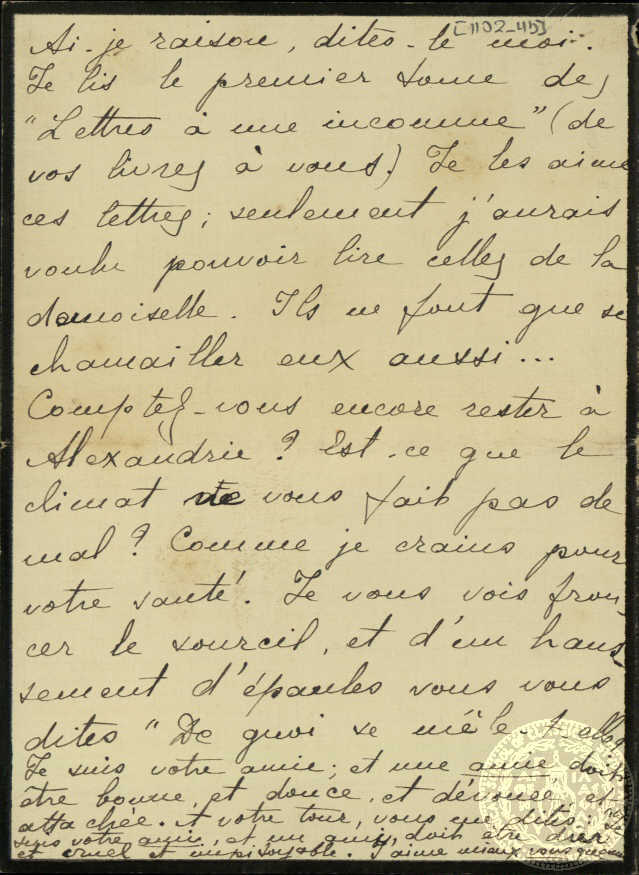 [1102-45]
Ai-je raison, dites-le moi.
Je lis le premier tome des
"Lettres à une inconnue" (de
vos livres à vous.) Je les aime
ces lettres; seulement j'aurais
voulu pouvoir lire celles de la
demoiselle. Ils ne font que se
chamailler eux aussi...
Comptez-vous encore rester à
Alexandrie? Est-ce que le
climat ne vous fait pas de
mal? Comme je crains pour
votre santé. Je vous vois fron-
cer le sourcil, et d'un haus-
sement d'épaules vous vous
dites "De quoi se mêle-t-elle?
Je suis votre amie; et une amie doit
être bonne, et douce, et dévouée, et
attachée. A votre tour, vous me dites:
suis votre ami, et un ami, doit être dur
et cruel et impitoyable. J'aime mieux vous